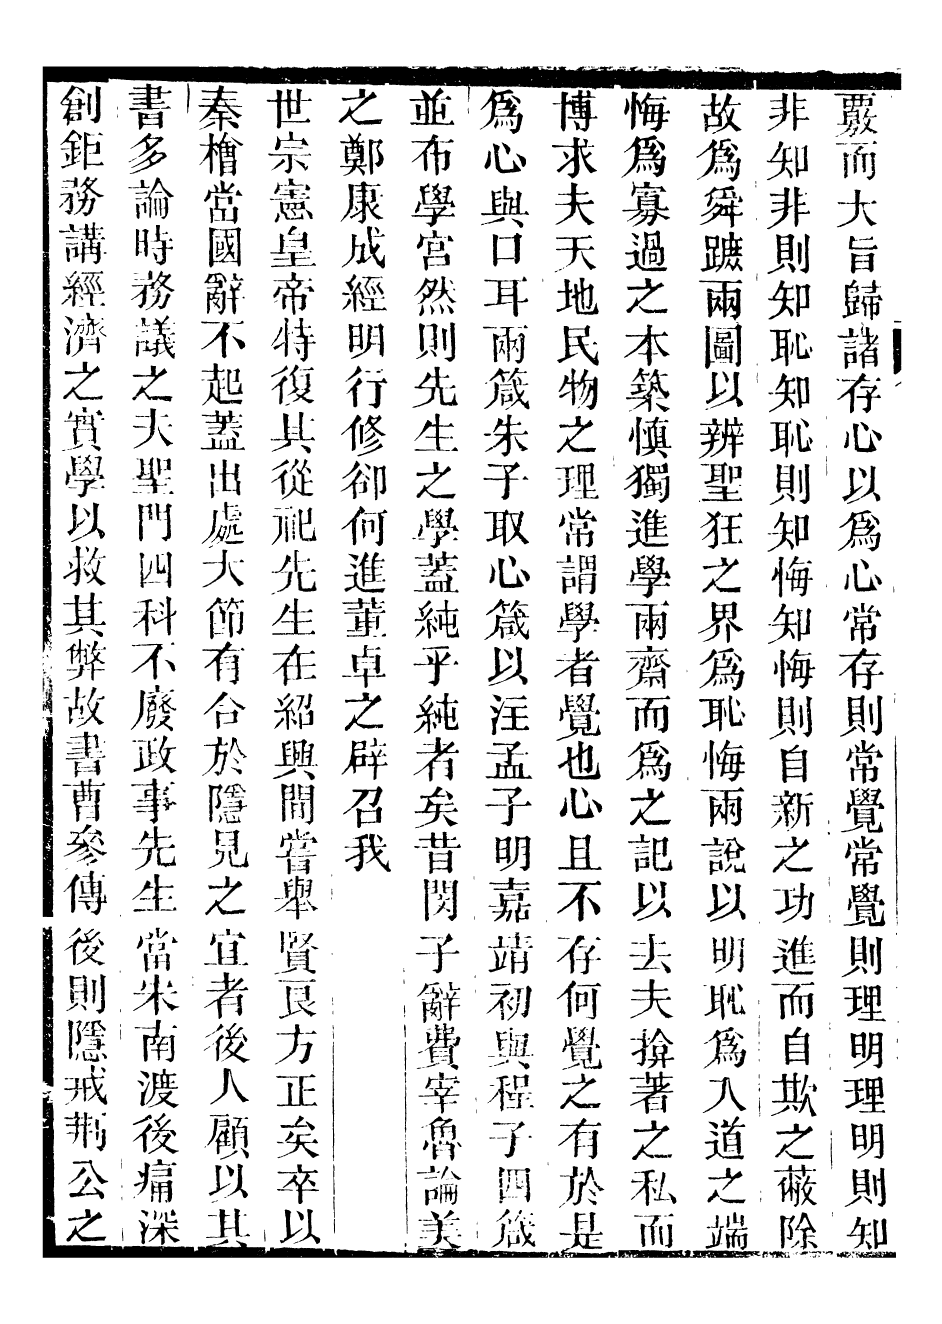 覈而大旨歸諸存心以爲心常存則常覺常覺則理明理明則知
非知非則知恥知恥則知悔知悔則自新之功進而自欺之蔽除
故爲舜蹠兩圖以辨聖狂之界爲恥悔兩說以明恥爲入道之端
悔爲寡過之本築慎獨進學兩齋而爲之記以去夫揜著之私而
博求夫天地民物之理常謂學者覺也心且不存何覺之有於是
爲心與口耳兩箴朱子取心箴以注孟子明嘉靖初與程子四箴
並布學宮然則先生之學蓋純乎純者矣昔閔子辭費宰魯論美
之鄭康成經明行修卻何進董卓之辟召我
世宗憲皇帝特復其從祀先生在紹興間嘗舉賢良方正矣卒以
秦檜當國辭不起蓋出處大節有合於隱見之宜者後人顧以其
書多論時務議之夫聖門四科不廢政事先生當宋南渡後痛深
創鉅務講經濟之實學以救其弊故書曹參傳後則隱戒荊公之